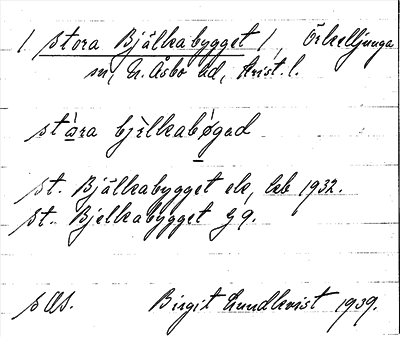 [ stora Bjälkabygget ], Örkelljunga
sn, N. Åsbo hd, Krist. l.
stàra bjèlkabǿgad
st. Bjälkabygget ek, kb 1932.
st. Bjelkabygget Gg.
Birgit Lundkvist 1939.